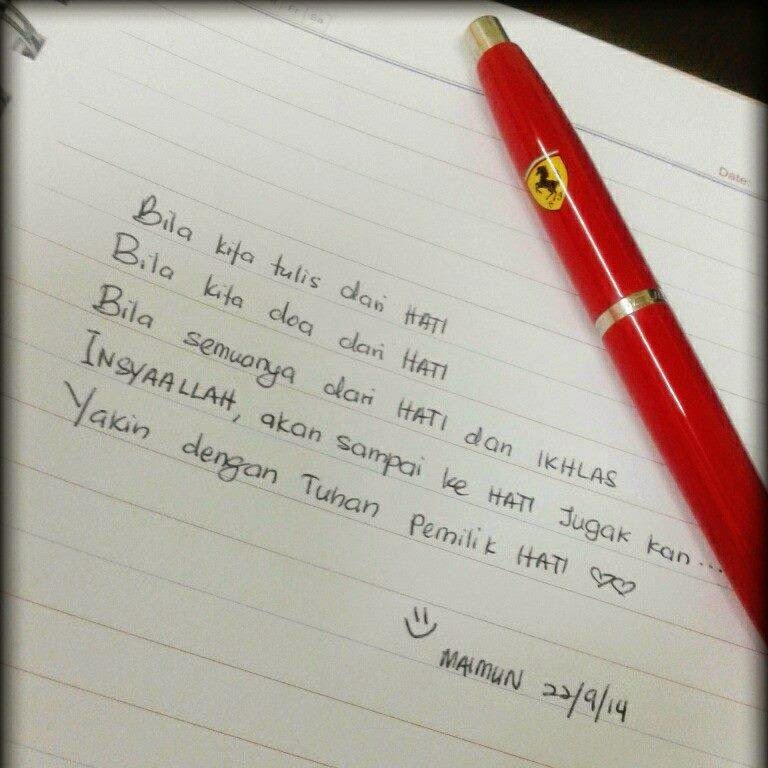 Fr Sa
Date:
Bila kita tulis dari HATI
Bila kita doa dari HATI
Bila semuanya dari HATI dan IKHLAS
INSYAALLAH, akan sampai ke HATI Jugak kan...
Yakin dengan Tuhan Pemilik HATI ♡♡
MAIMUN 22/9/14